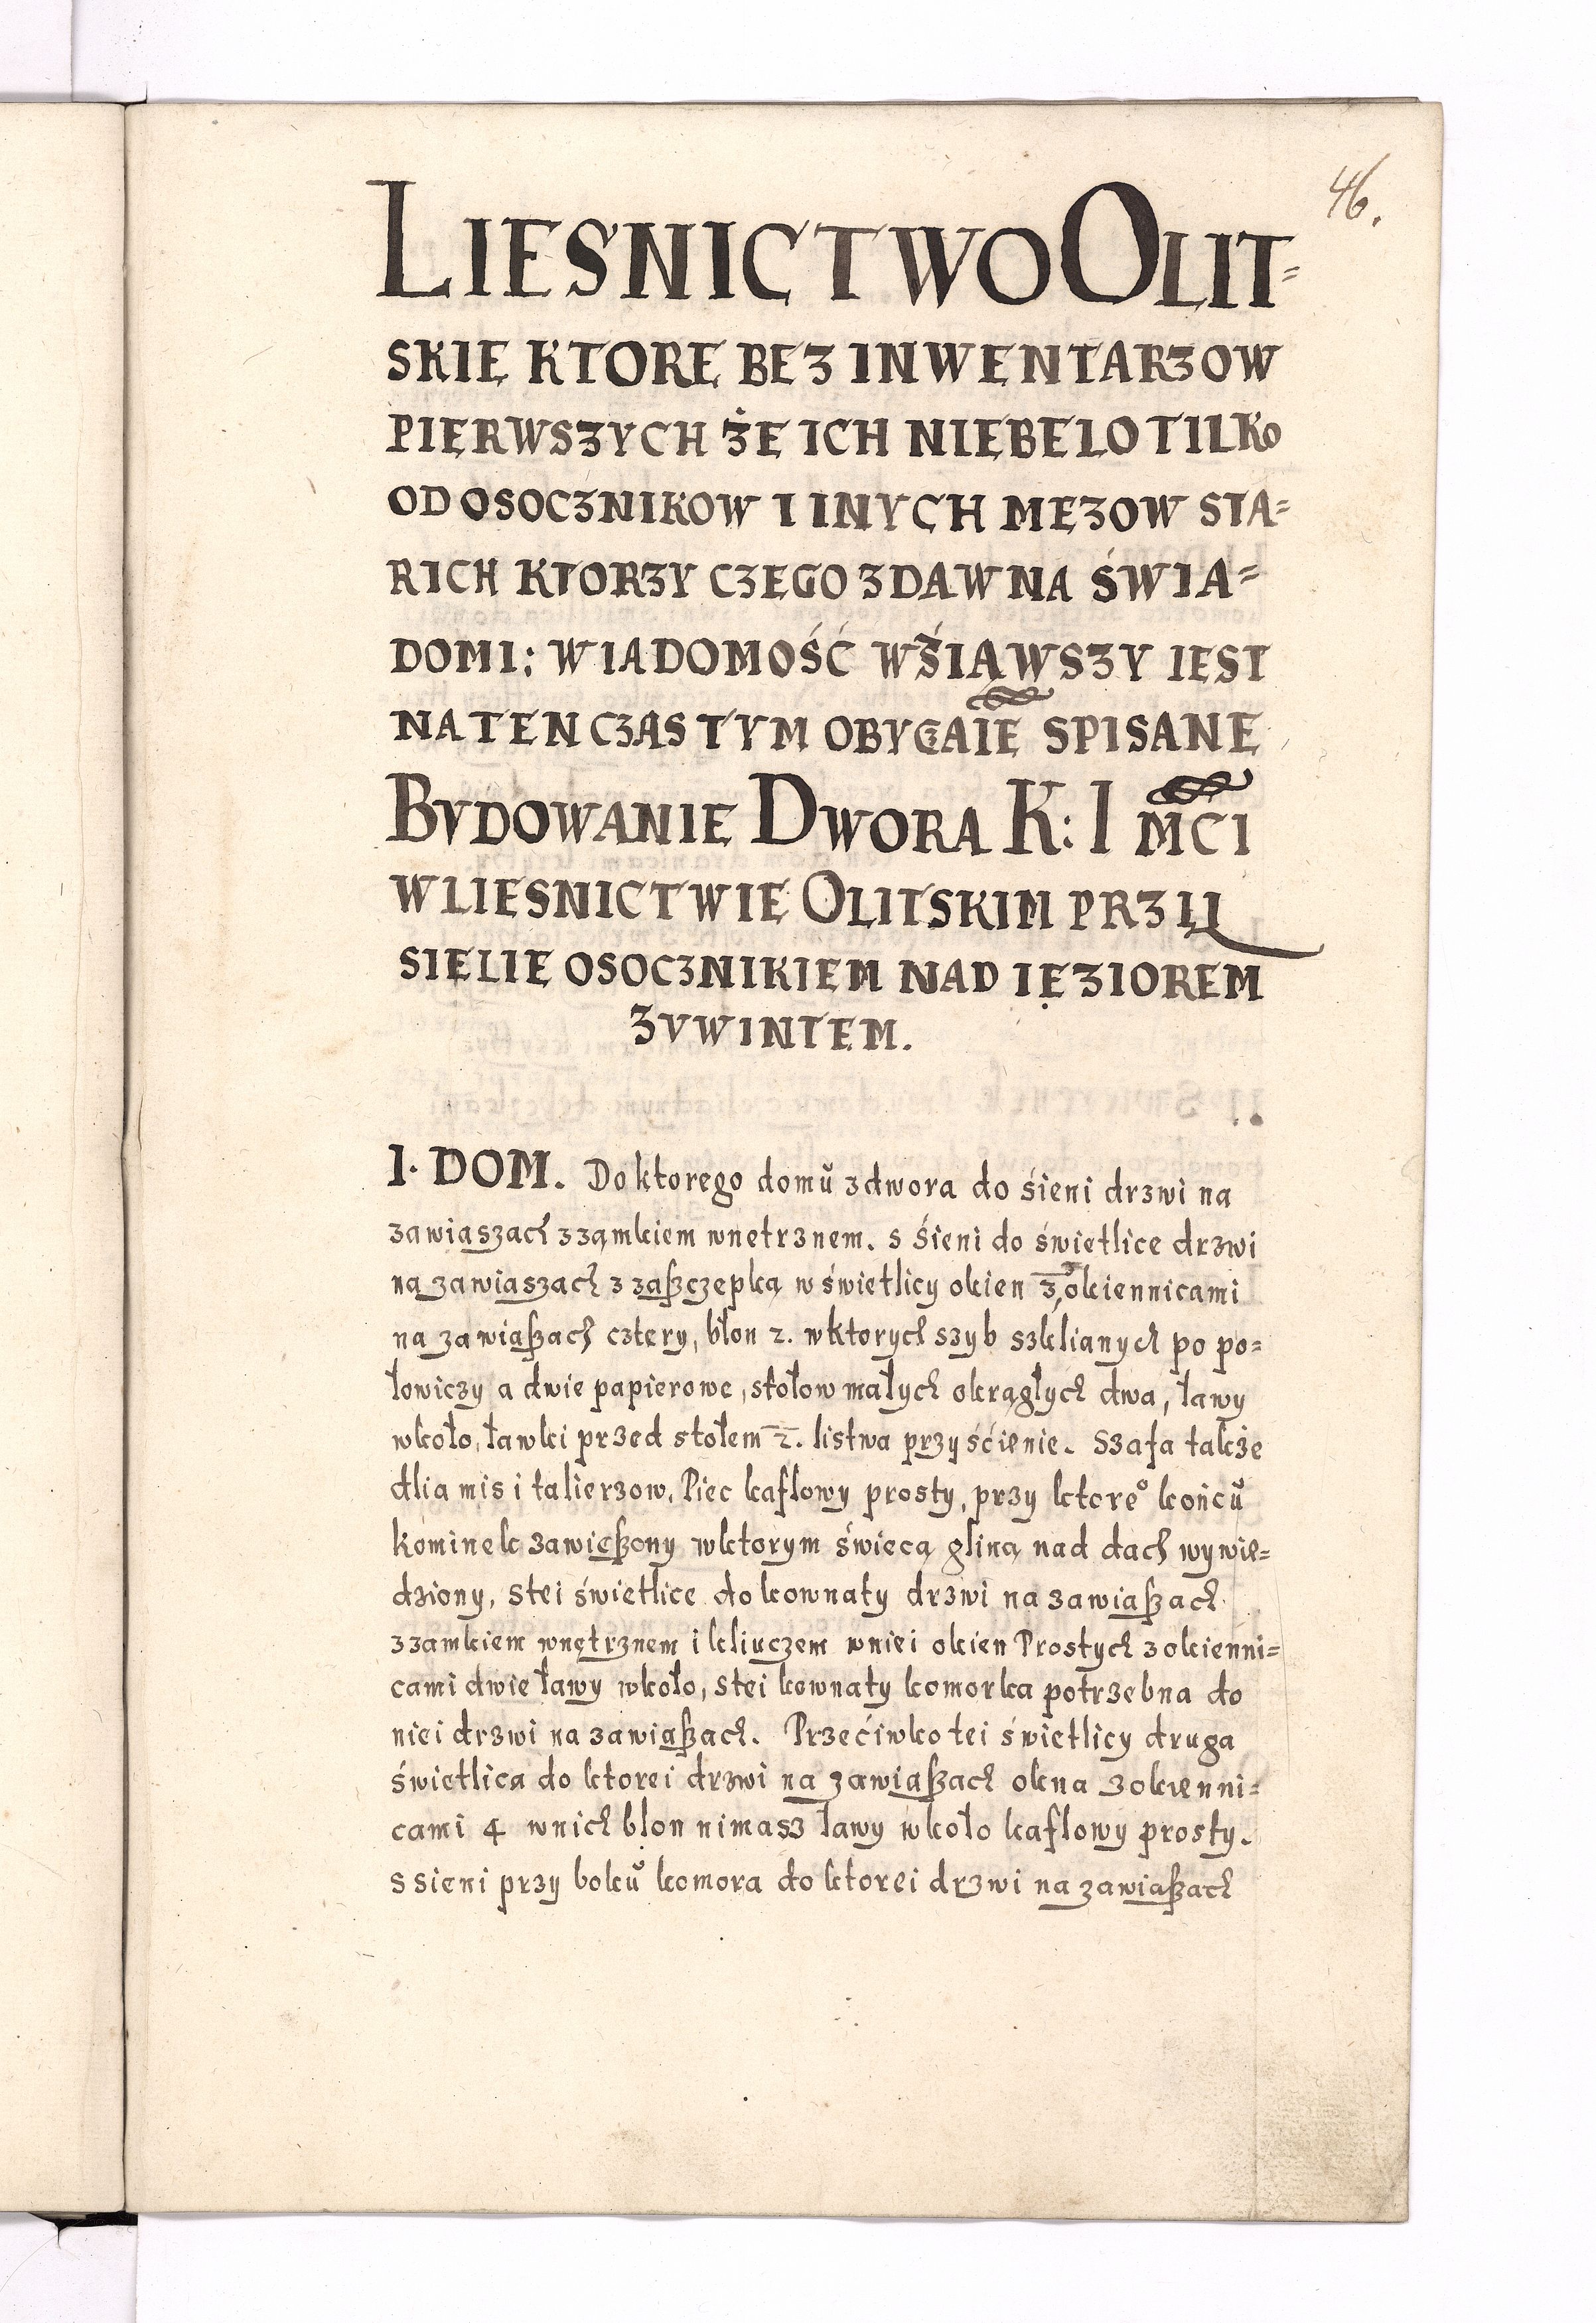 46.
LIESNICTWO OLIT=
SKIE KTORE BEZ INWENTARZOW
PIERWSZYCH ŻE ICH NIEBELO TILKo
OD OSOCZNIKOW I INYCH MEZOW STA=
RICH KTORZY CZEGO ZDAWNA ŚWIA=
DOMI: WIADOMOŚĆ WŚIĄWSZY IEST
NATENCZAS TYM OBYCZAIE SPISANE
BVDOWANIE DWORA K: I MCI
WLIESNICTWIE OLITSKIM PRZY
SIELIE OSOCZNIKIEM NAD IEZIOREM
ZVWINTEM.
I. DOM. Do ktorego domŭ zdwora do śieni drzwi na
zawiaszach zzamkiem wnetrznem. s śieni do świetlice drzwi
na zawiaszach z zaszczepką w świetlicy okien 3, okiennicami
na zawiaszach cztery, błon 2. wktorych szyb szklianych po po=
łowiczy a dwie papierowe, stołow małych okrągłych dwa, ławy
wkoło, ławki przed stołem 2. listwa przy śćienie. Szafa także
dlia mis i talierzow, Piec kaflowy prosty, przy ktore° końcŭ
kominek zawieszony wktorym świecą gliną nad dach wywie=
dziony, Stei świetlice do kownaty drzwi na zawiaszach
zzamkiem wnętrznem i kliuczem wniei okien Prostych z okienni=
cami dwie ławy wkoło, stei kownaty komorka potrzebna do
niei drzwi na zawiaszach. Przećiwko tei świetlicy druga
świetlica do ktorei drzwi na zawiaszach okna z okienni=
cami 4 wnich błon nimasz ławy wkoło kaflowy prosty.
S sieni przy bokŭ komora do ktorei drzwi na zawiaszach